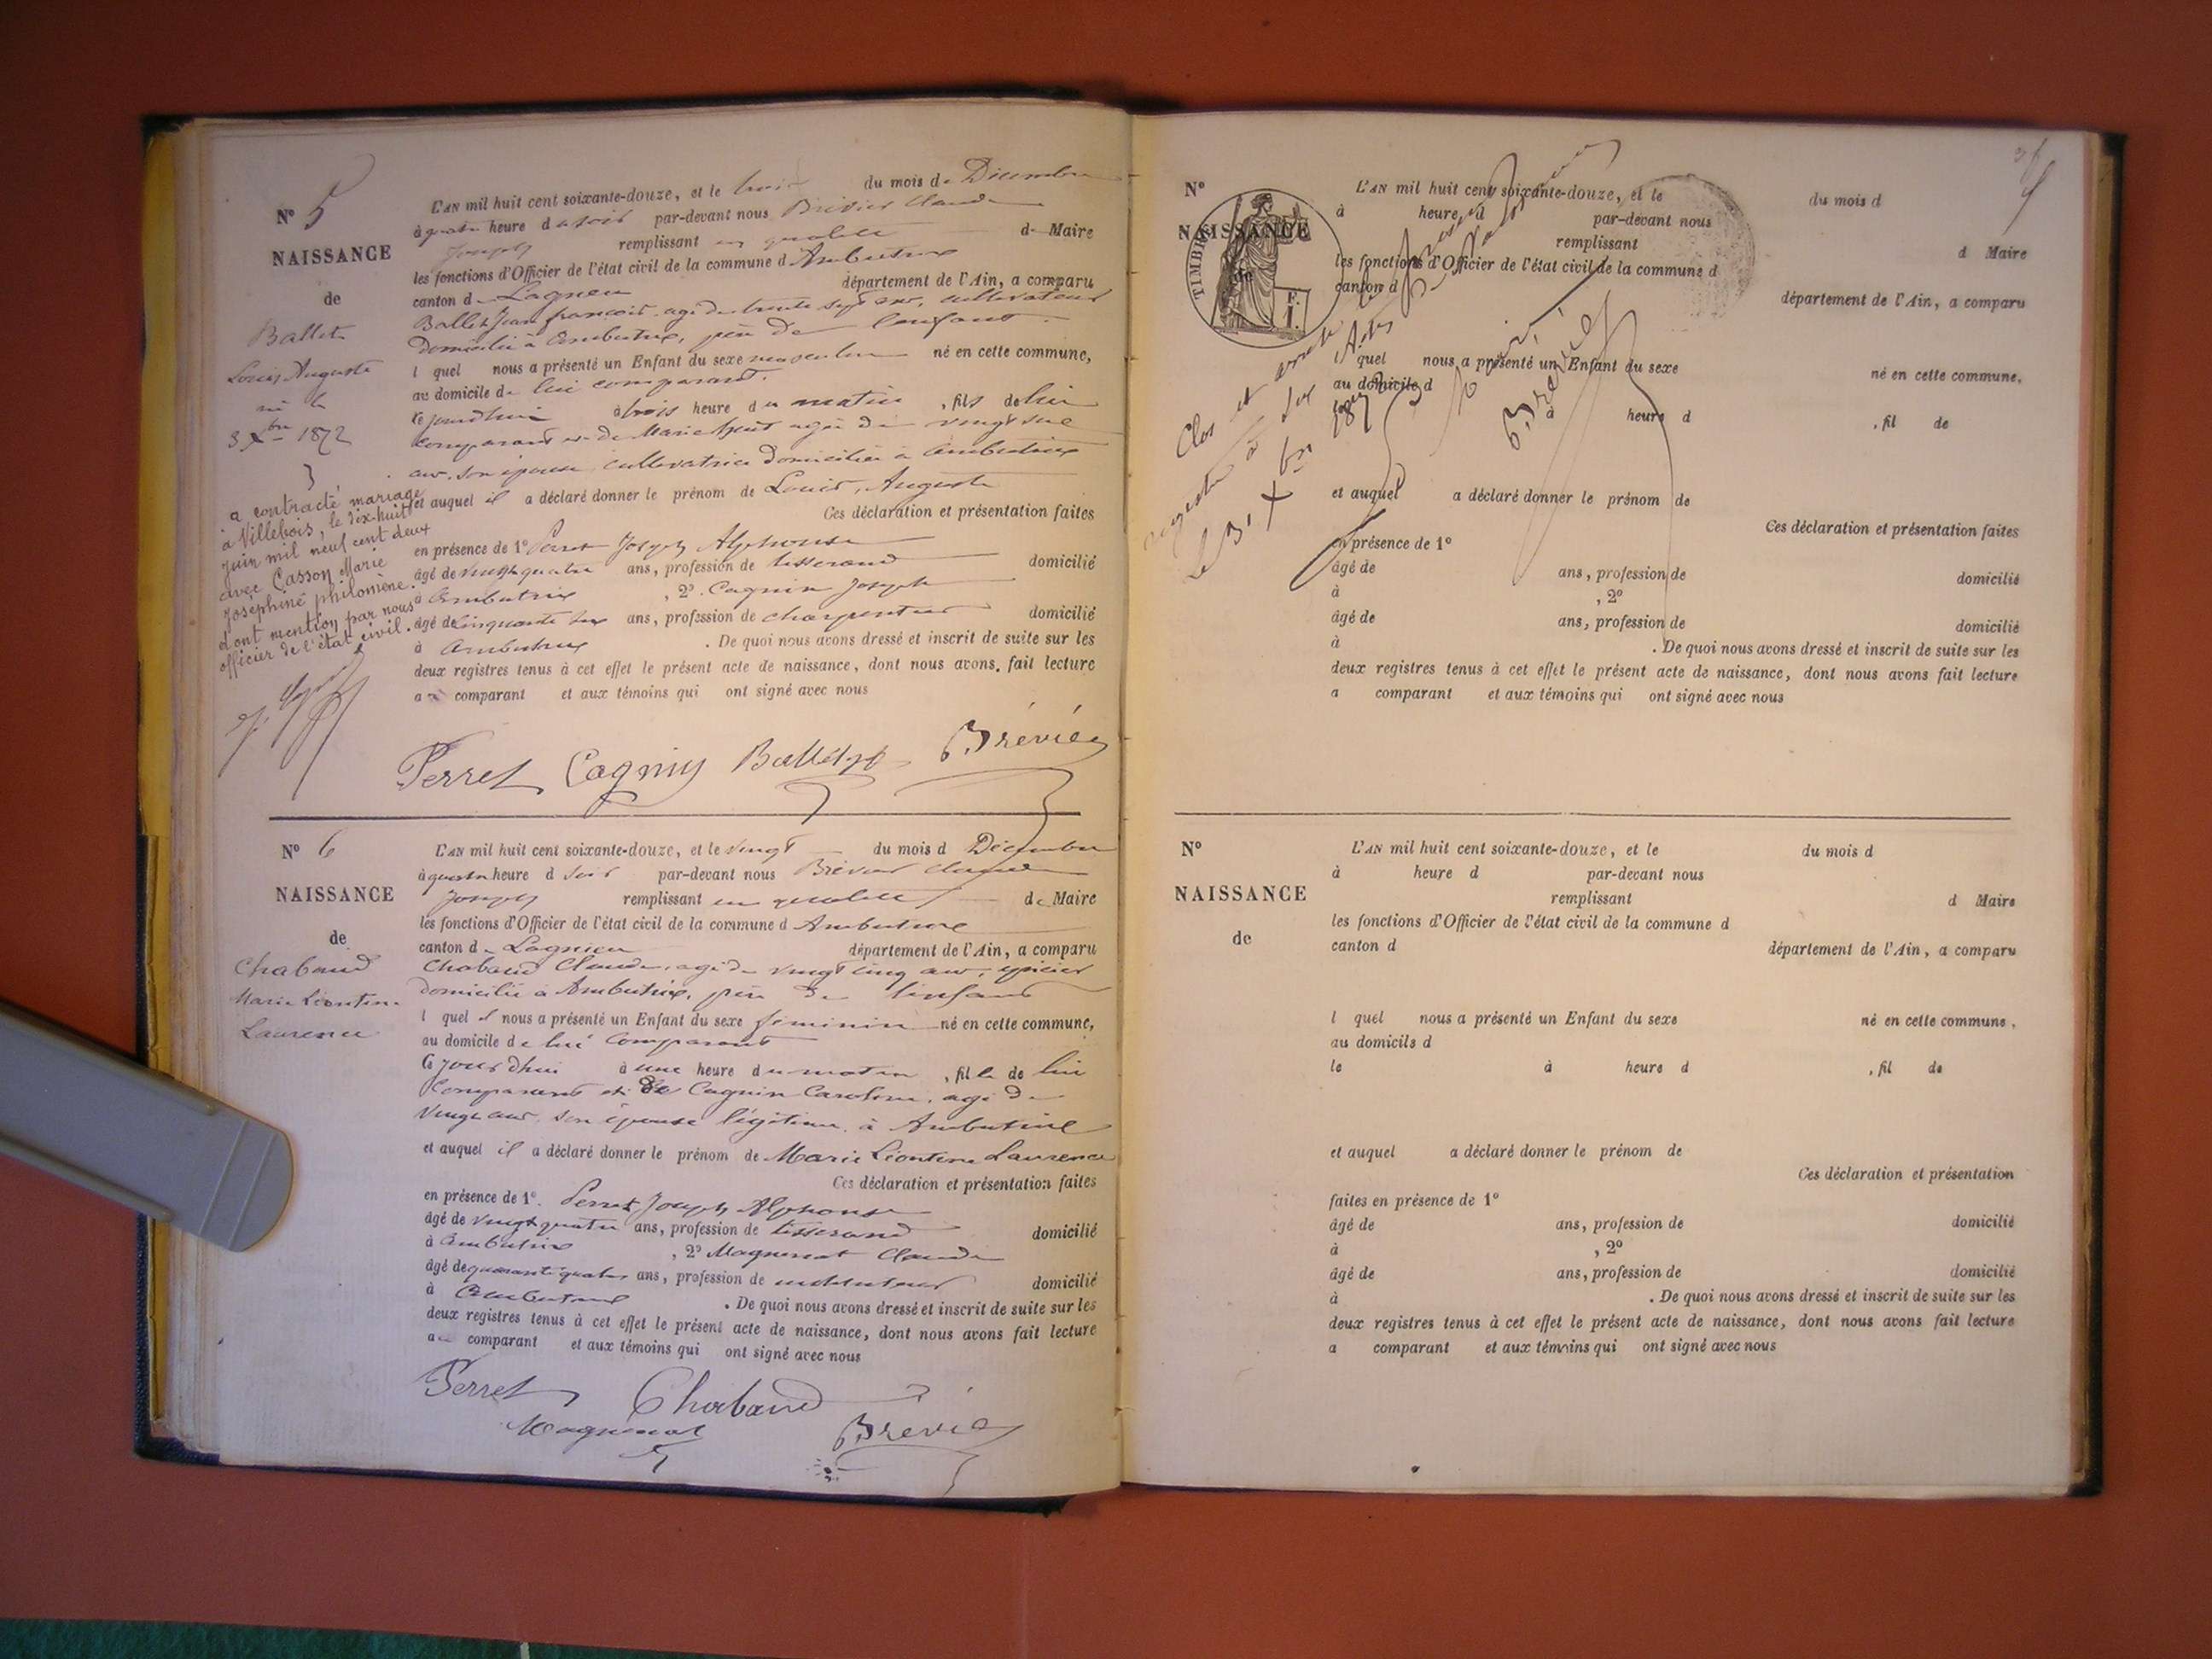 N° 5
NAISSANCE
de
Ballet
Louis Auguste
né le
3 Xbre 1872
a contracté mariage
à Villebois, le dix-huit
juin mil neuf cent deux
avec Casson Marie
Joséphine philomène.
dont mention par nous
officier de l'état civil.
L'AN mil huit cent soixante-douze, et le trois du mois de Décembre
à quatre heure du soir par-devant nous Brévier Claude
Joseph remplissant en qualité de Maire
les fonctions d'Officier de l'état civil de la commune d Ambutrix
canton de Lagnieu département de l'Ain, a comparu
Ballet Jean françois, agé de trente sept ans, cultivateur
domicilié à Ambutrix, père de l'enfant
l quel nous a présenté un Enfant du sexe masculin né en cette commune,
au domicile de lui comparant.
ce jourd'hui à trois heure du matin , fils de lui
comparant et de Marie agée de vingt
ans, son épouse, cultivatrice domiciliée à Ambutrix
et auquel il a déclaré donner le prénom de Louis, Auguste
Ces déclaration et présentation faites
en présence de 1° Perret Joseph Alphonse
âgé de vingt quatre ans, profession de tisserand domicilié
à Ambutrix , 2°. Cagnin Joseph
âgé de cinquante ans, profession de charpentier domicilié
à Ambutrix . De quoi nous avons dressé et inscrit de suite sur les
deux registres tenus à cet effet le présent acte de naissance, dont nous avons. fait lecture
au comparant et aux témoins qui ont signé avec nous
Perret Cagnin Ballet Brévier
N° 6
NAISSANCE
de
Chabaud
Marie Léontine
Laurence
L'AN mil huit cent soixante-douze, et le vingt du mois d Décembre
à quatre heure d soir par-devant nous Brévier Claude
Joseph remplissant en qualité de Maire
les fonctions d'Officier de l'état civil de la commune d Ambutrix
canton de Lagnieu département de l'Ain, a comparu
Chabaud Claude, agé de vingt cinq ans, épicier
domicilié à Ambutrix, père de l'enfant
l quel il nous a présenté un Enfant du sexe féminin né en cette commune,
au domicile de lui comparant
ce jourd'hui à une heure du matin , fille de lui
comparant et de Cagnin Caroline, agé de
vingt ans, son épouse légitime, à Ambutrix
et auquel il a déclaré donner le prénom de Marie Léontine Laurence
Ces déclaration et présentation faites
en présence de 1°. Perret Joseph Alphonse
âgé de vingt quatre ans, profession de tisserand domicilié
à Ambutrix , 2° Magnenat Claude
âgé de quarante quatre ans, profession de instituteur domicilié
à Ambutrix . De quoi nous avons dressé et inscrit de suite sur les
deux registres tenus à cet effet le présent acte de naissance, dont nous avons fait lecture
au comparant et aux témoins qui ont signé avec nous
Perret Chabaud
Magnenat Brévier
N°
NAISSANCE
de
TIMBRE
L'AN mil huit cent soixante-douze, et le du mois d
à heure d par-devant nous
remplissant d Maire
les fonctions d'Officier de l'état civil de la commune d
canton d département de l'Ain, a comparu
Clos et arrêté le
registre à
le 31 Xbre 1872
Brévier
l quel nous a présenté un Enfant du sexe né en cette commune,
au domicile d
à heure d , fil de
et auquel a déclaré donner le prénom de
Ces déclaration et présentation faites
en présence de 1°
âgé de ans, profession de domicilié
à , 2°
âgé de ans, profession de domicilié
à . De quoi nous avons dressé et inscrit de suite sur les
deux registres tenus à cet effet le présent acte de naissance, dont nous avons fait lecture
a comparant et aux témoins qui ont signé avec nous
N°
NAISSANCE
de
L'AN mil huit cent soixante-douze, et le du mois d
à heure d par-devant nous
remplissant d Maire
les fonctions d'Officier de l'état civil de la commune d
canton d département de l'Ain, a comparu
l quel nous a présenté un Enfant du sexe né en cette commune,
au domicile d
le à heure d , fil de
et auquel a déclaré donner le prénom de
Ces déclaration et présentation
faites en présence de 1°
âgé de ans, profession de domicilié
à , 2°
âgé de ans, profession de domicilié
à . De quoi nous avons dressé et inscrit de suite sur les
deux registres tenus à cet effet le présent acte de naissance, dont nous avons fait lecture
a comparant et aux témoins qui ont signé avec nous